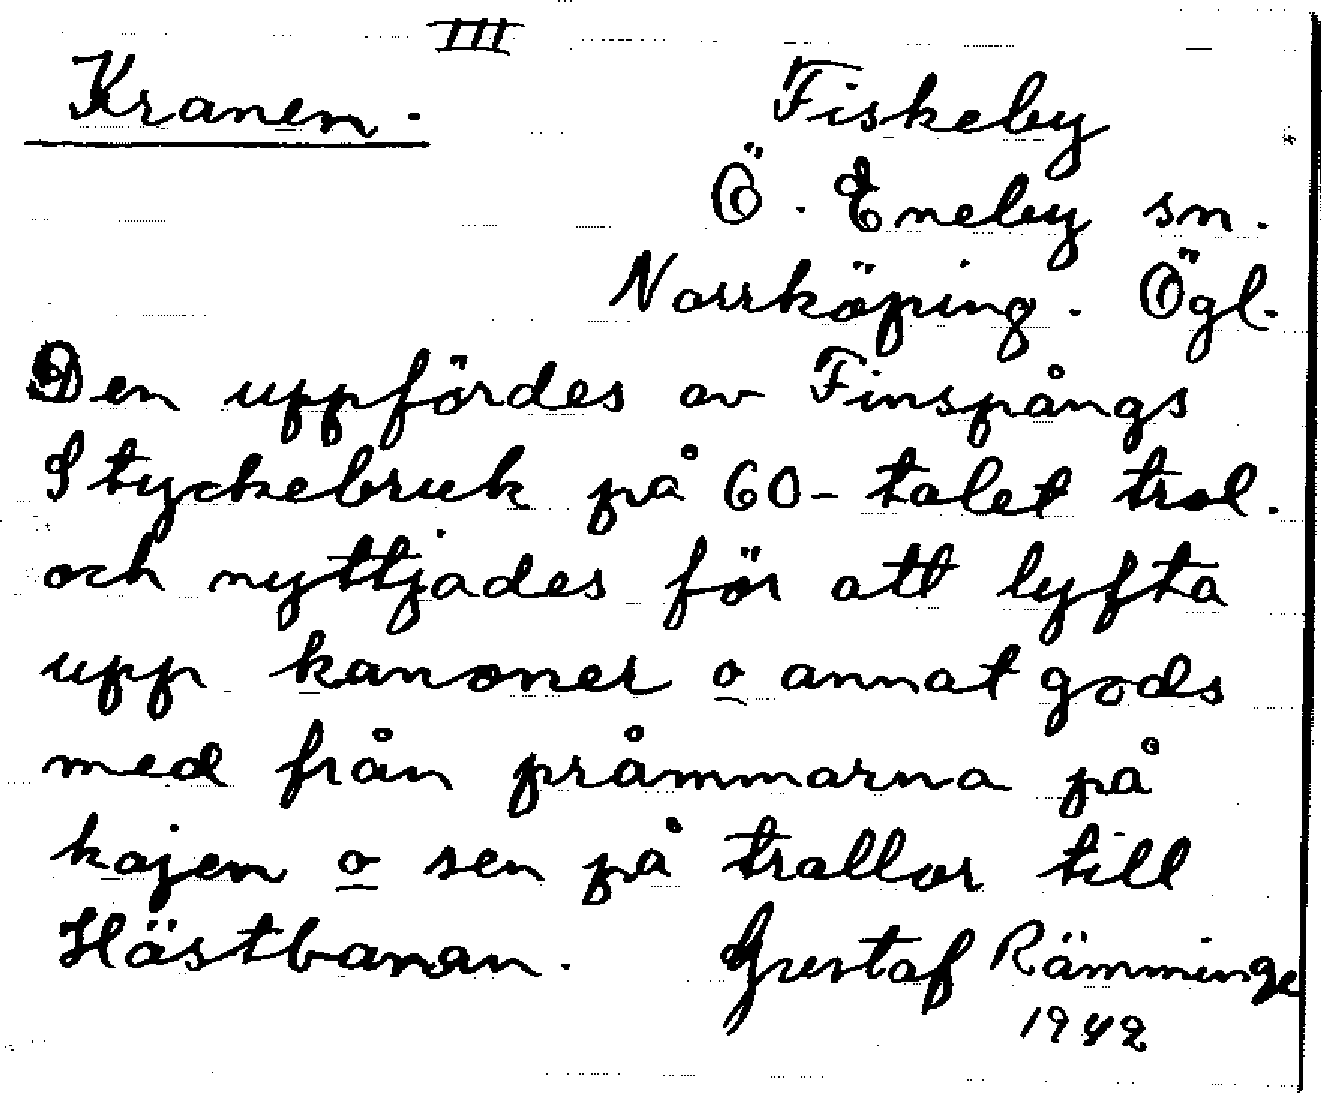 III
Kranen.
Fiskeby
Ö. Eneby sn.
Norrköping. Ögl.
Den uppfördes av Finspångs
Styckebruk på 60-talet trol.
och nyttjades för att lyfta
upp kanoner o annat gods
med från pråmmarna på
kajen o sen på trallor till
Hästbanan. Gustaf Rämminge
1942